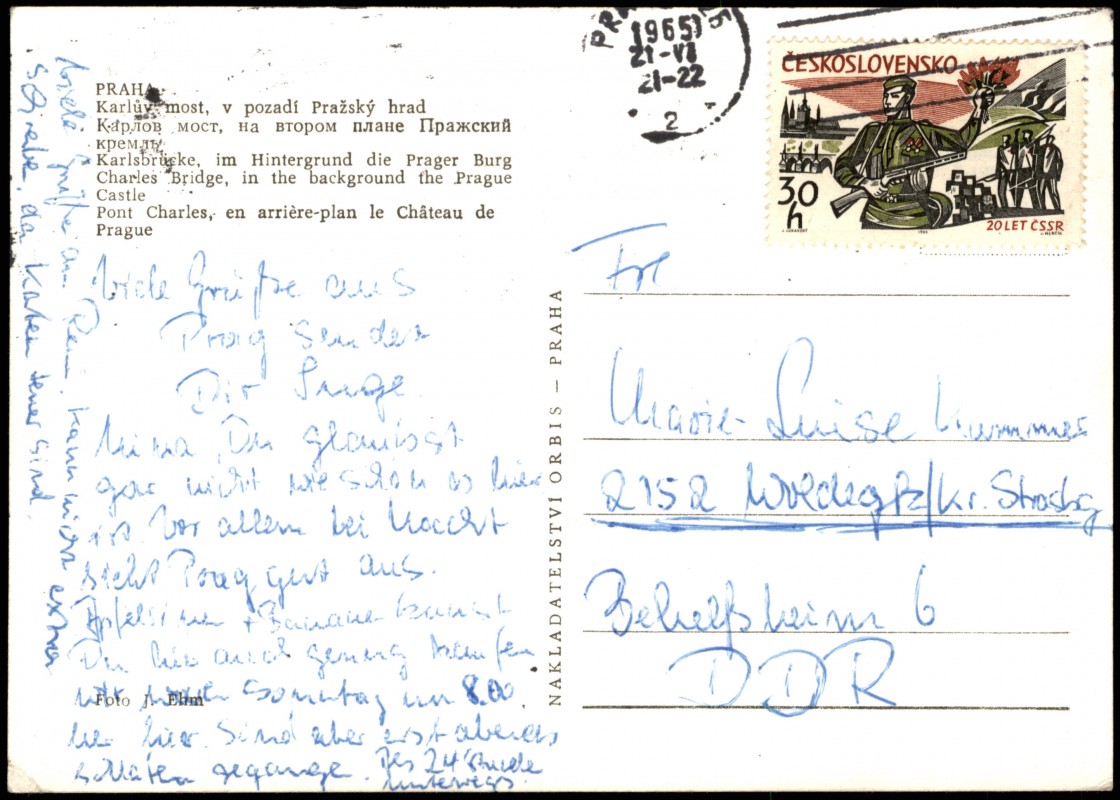 PRAHA
Karlův most, v pozadí Pražský hrad
Карлов мост, на втором плане Пражский
кремль
Karlsbrücke, im Hintergrund die Prager Burg
Charles Bridge, in the background the Prague
Castle
Pont Charles, en arrière-plan le Château de
Prague
Viele Grüße aus
Prag sendet
Dir Inge.
Du glaubst
gar nicht wie schön es hier
ist. Vor allem bei Nacht
sieht Prag gut aus.
Apfelsinen + Banane kannst
Du hier auch genug kaufen
Sonntag um 8.00
hier. Sind aber erst abends
schlafen gegange. Bis 24 Stunde
unterwegs.
Foto J. Ehm
Viele Grüße an Kann nicht extra
schreiben, da Karten teuer sind.
NAKLADATELSTVÍ ORBIS — PRAHA
1965
21-VI
21-22
2
ČESKOSLOVENSKO
30
h
20 LET ČSSR
Frl
Marie-Luise Kummer
2152 Woldegk/Kr. Strasbg
Behelfsheim 6
DDR